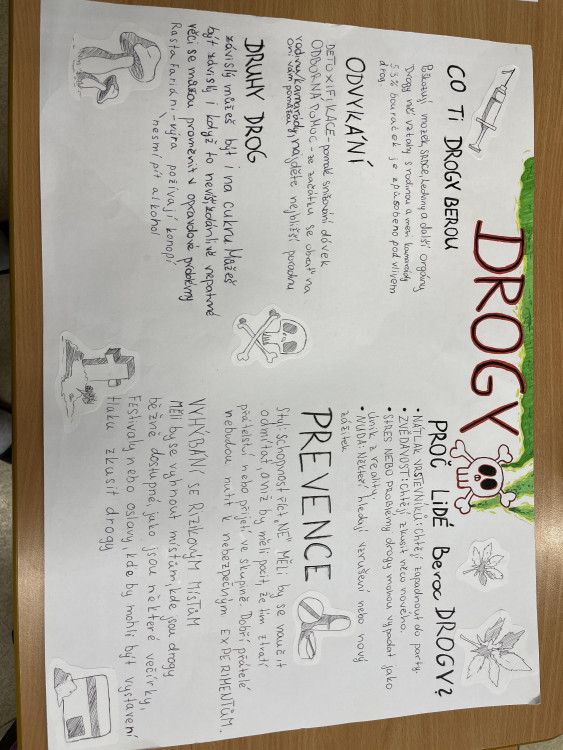 DROGY
CO TI DROGY BEROU
Poškozují mozek, srdce, ledviny a další orgány
Drogy ničí vztahy s rodinou a mezi kamarády
53% bouraček je způsobeno pod vlivem
drog.
ODVYKÁNÍ
DETOXIFIKACE - pomalé snižování dávek
ODBORNÁ POMOC - ze začátku se obrať na
rodinu/kamarády, najděte nejbližší poradnu
oni vám pomůžou
DRUHY DROG
závislý můžeš být i na cukru Můžeš
být závislý i když to nevíš, zdánlivě nepatrné
věci se můžou proměnit v opravdové problémy
Rastafariáni - víra požívají konopí
nesmí pít alkohol
PROČ LIDÉ Berou DROGY?
• NÁTLAK VRSTEVNÍKŮ: Chtějí zapadnout do party.
• ZVĚDAVOST: Chtějí zkusit něco nového.
• STRES NEBO PROBLÉMY drogy mohou vypadat jako
únik z reality.
• NUDA Někteří hledají vzrušení nebo nový
zážitek
PREVENCE
Styl: schopnost říct „NE" MĚLI by se naučit
odmítat, aniž by měli pocit, že tím ztratí
přátelství, nebo přijetí ve skupině. Dobří přátelé
nebudou nutit k nebezpečným EXPERIMENTŮM.
VYHÝBÁNÍ SE RIZIKOVÝM MÍSTŮM
MĚLI by se vyhnout místům, kde jsou drogy
běžně dostupné, jako jsou některé večírky,
Festivaly nebo oslavy, kde by mohli být vystavení
tlaku zkusit drogy